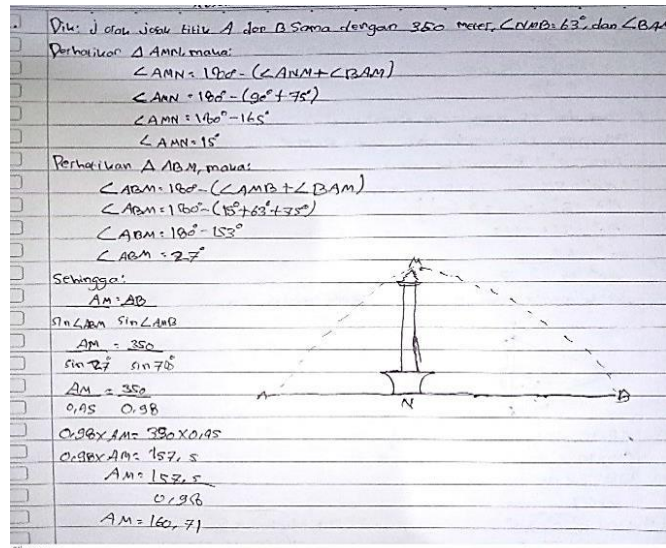 Dik: Jarak josak titik A dan B Sama dengan 350 meter, ∠NMB = 63°, dan ∠BAM
Perhatikan Δ AMN, maka:
∠AMN = 180° - (∠ANM + ∠BAM)
∠AMN = 180° - (90° + 75°)
∠AMN = 180° - 165°
∠AMN = 15°
Perhatikan Δ ABM, maka:
∠ABM = 180° - (∠AMB + ∠BAM)
∠ABM = 180° - (15° + 63° + 75°)
∠ABM = 180° - 153°
∠ABM = 27°
Sehingga:
AM = AB
sin∠ABM sin∠AMB
AM = 350
sin 27° sin 78°
AM = 350
0,45 0,98
0,98 x AM = 350 x 0,45
0,98 x AM = 157,5
AM = 157,5
0,98
AM = 160,71
M
A
N
B